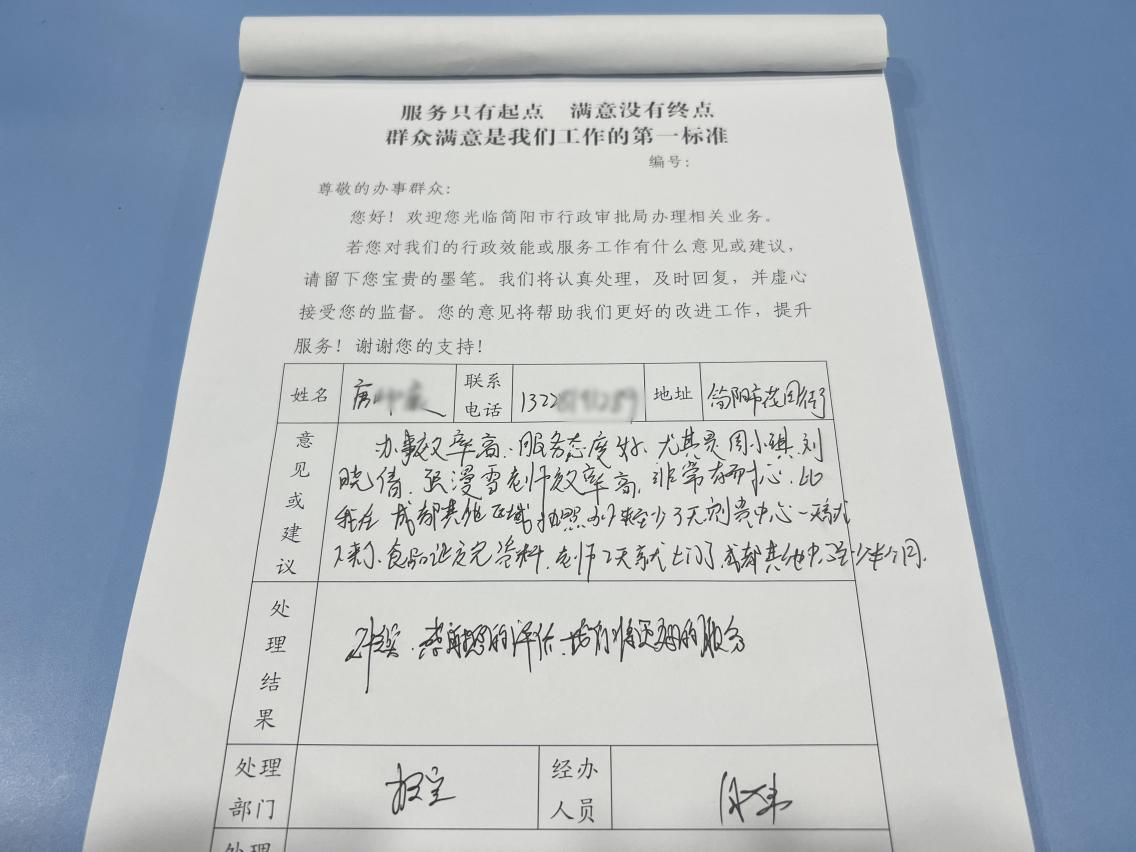 服务只有起点 满意没有终点
群众满意是我们工作的第一标准
编号：
尊敬的办事群众：
您好！欢迎您光临简阳市行政审批局办理相关业务。
若您对我们的行政效能或服务工作有什么意见或建议，
请留下您宝贵的墨笔。我们将认真处理，及时回复，并虚心
接受您的监督。您的意见将帮助我们更好的改进工作，提升
服务！谢谢您的支持！
姓名 唐 联系电话 1322 地址 简阳市花园街
意见或建议
办事效率高、服务态度好、尤其是周小琪、刘
晓倩、张漫雪老师效率高、非常有耐心、比
我在成都其他区域办照 至少3天，到贵中心一天就
下来了、食品证交完资料，老师2天就上门了，成都其他中心至少半个月。
处理结果
的评价、 的服务
处理部门
经办人员
处理